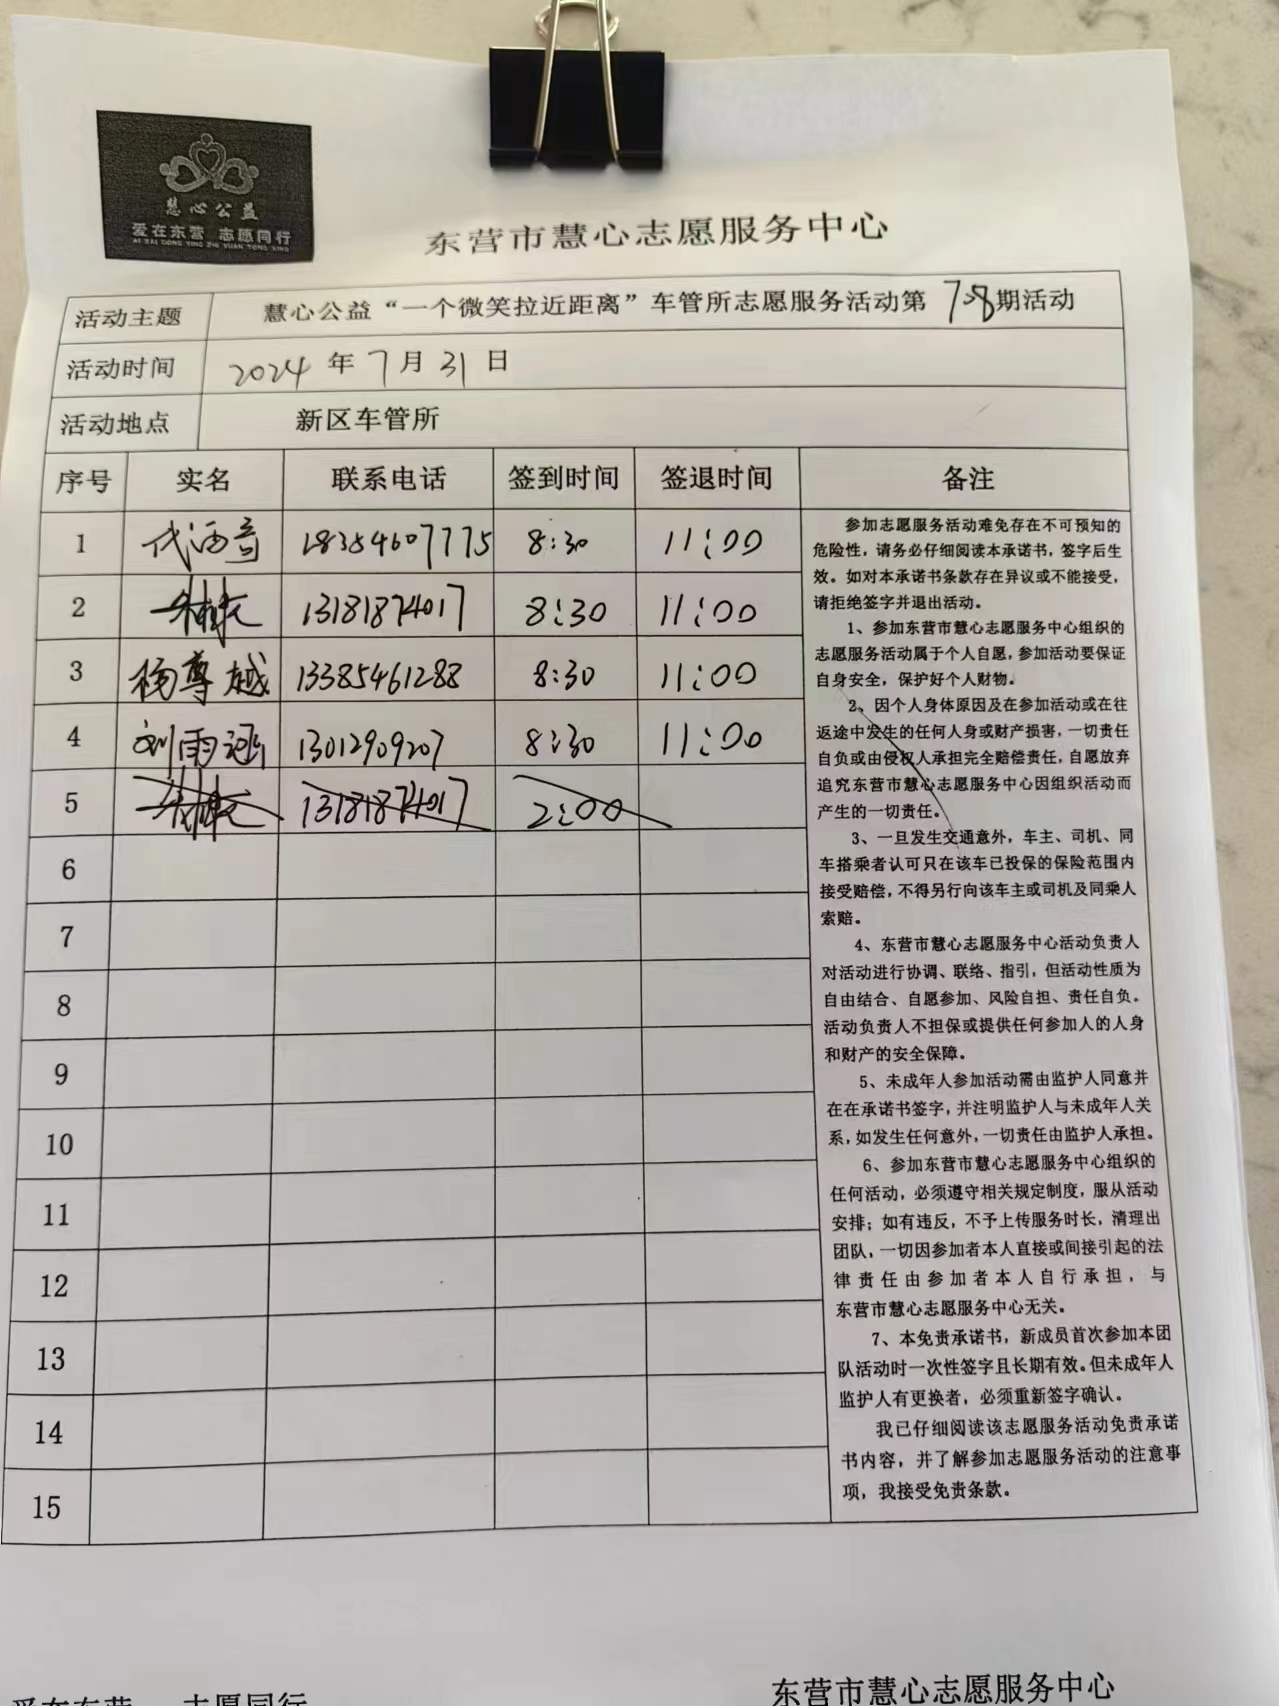 慧心公益
爱在东营 志愿同行
AI ZAI DONG YING ZHI YUAN TONG XING
东营市慧心志愿服务中心
活动主题 慧心公益“一个微笑拉近距离”车管所志愿服务活动第 期活动
活动时间 2024 年 7 月 31 日
活动地点 新区车管所
序号 实名 联系电话 签到时间 签退时间 备注
1 代酒音 18354607775 8:30 11:00
2 13181874017 8:30 11:00
3 杨尊越 13385461288 8:30 11:00
4 刘雨涵 13012909207 8:30 11:00
5 13181874017 2:00
6
7
8
9
10
11
12
13
14
15
参加志愿服务活动难免存在不可预知的
危险性，请务必仔细阅读本承诺书，签字后生
效。如对本承诺书条款存在异议或不能接受，
请拒绝签字并退出活动。
1、参加东营市慧心志愿服务中心组织的
志愿服务活动属于个人自愿，参加活动要保证
自身安全，保护好个人财物。
2、因个人身体原因及在参加活动或在往
返途中发生的任何人身或财产损害，一切责任
自负或由侵权人承担完全赔偿责任，自愿放弃
追究东营市慧心志愿服务中心因组织活动而
产生的一切责任。
3、一旦发生交通意外，车主、司机、同
车搭乘者认可只在该车已投保的保险范围内
接受赔偿，不得另行向该车主或司机及同乘人
索赔。
4、东营市慧心志愿服务中心活动负责人
对活动进行协调、联络、指引，但活动性质为
自由结合、自愿参加、风险自担、责任自负。
活动负责人不担保或提供任何参加人的人身
和财产的安全保障。
5、未成年人参加活动需由监护人同意并
在在承诺书签字，并注明监护人与未成年人关
系，如发生任何意外，一切责任由监护人承担。
6、参加东营市慧心志愿服务中心组织的
任何活动，必须遵守相关规定制度，服从活动
安排；如有违反，不予上传服务时长，清理出
团队，一切因参加者本人直接或间接引起的法
律责任由参加者本人自行承担，与
东营市慧心志愿服务中心无关。
7、本免责承诺书，新成员首次参加本团
队活动时一次性签字且长期有效。但未成年人
监护人有更换者，必须重新签字确认。
我已仔细阅读该志愿服务活动免责承诺
书内容，并了解参加志愿服务活动的注意事
项，我接受免责条款。
爱在东营 志愿同行 东营市慧心志愿服务中心